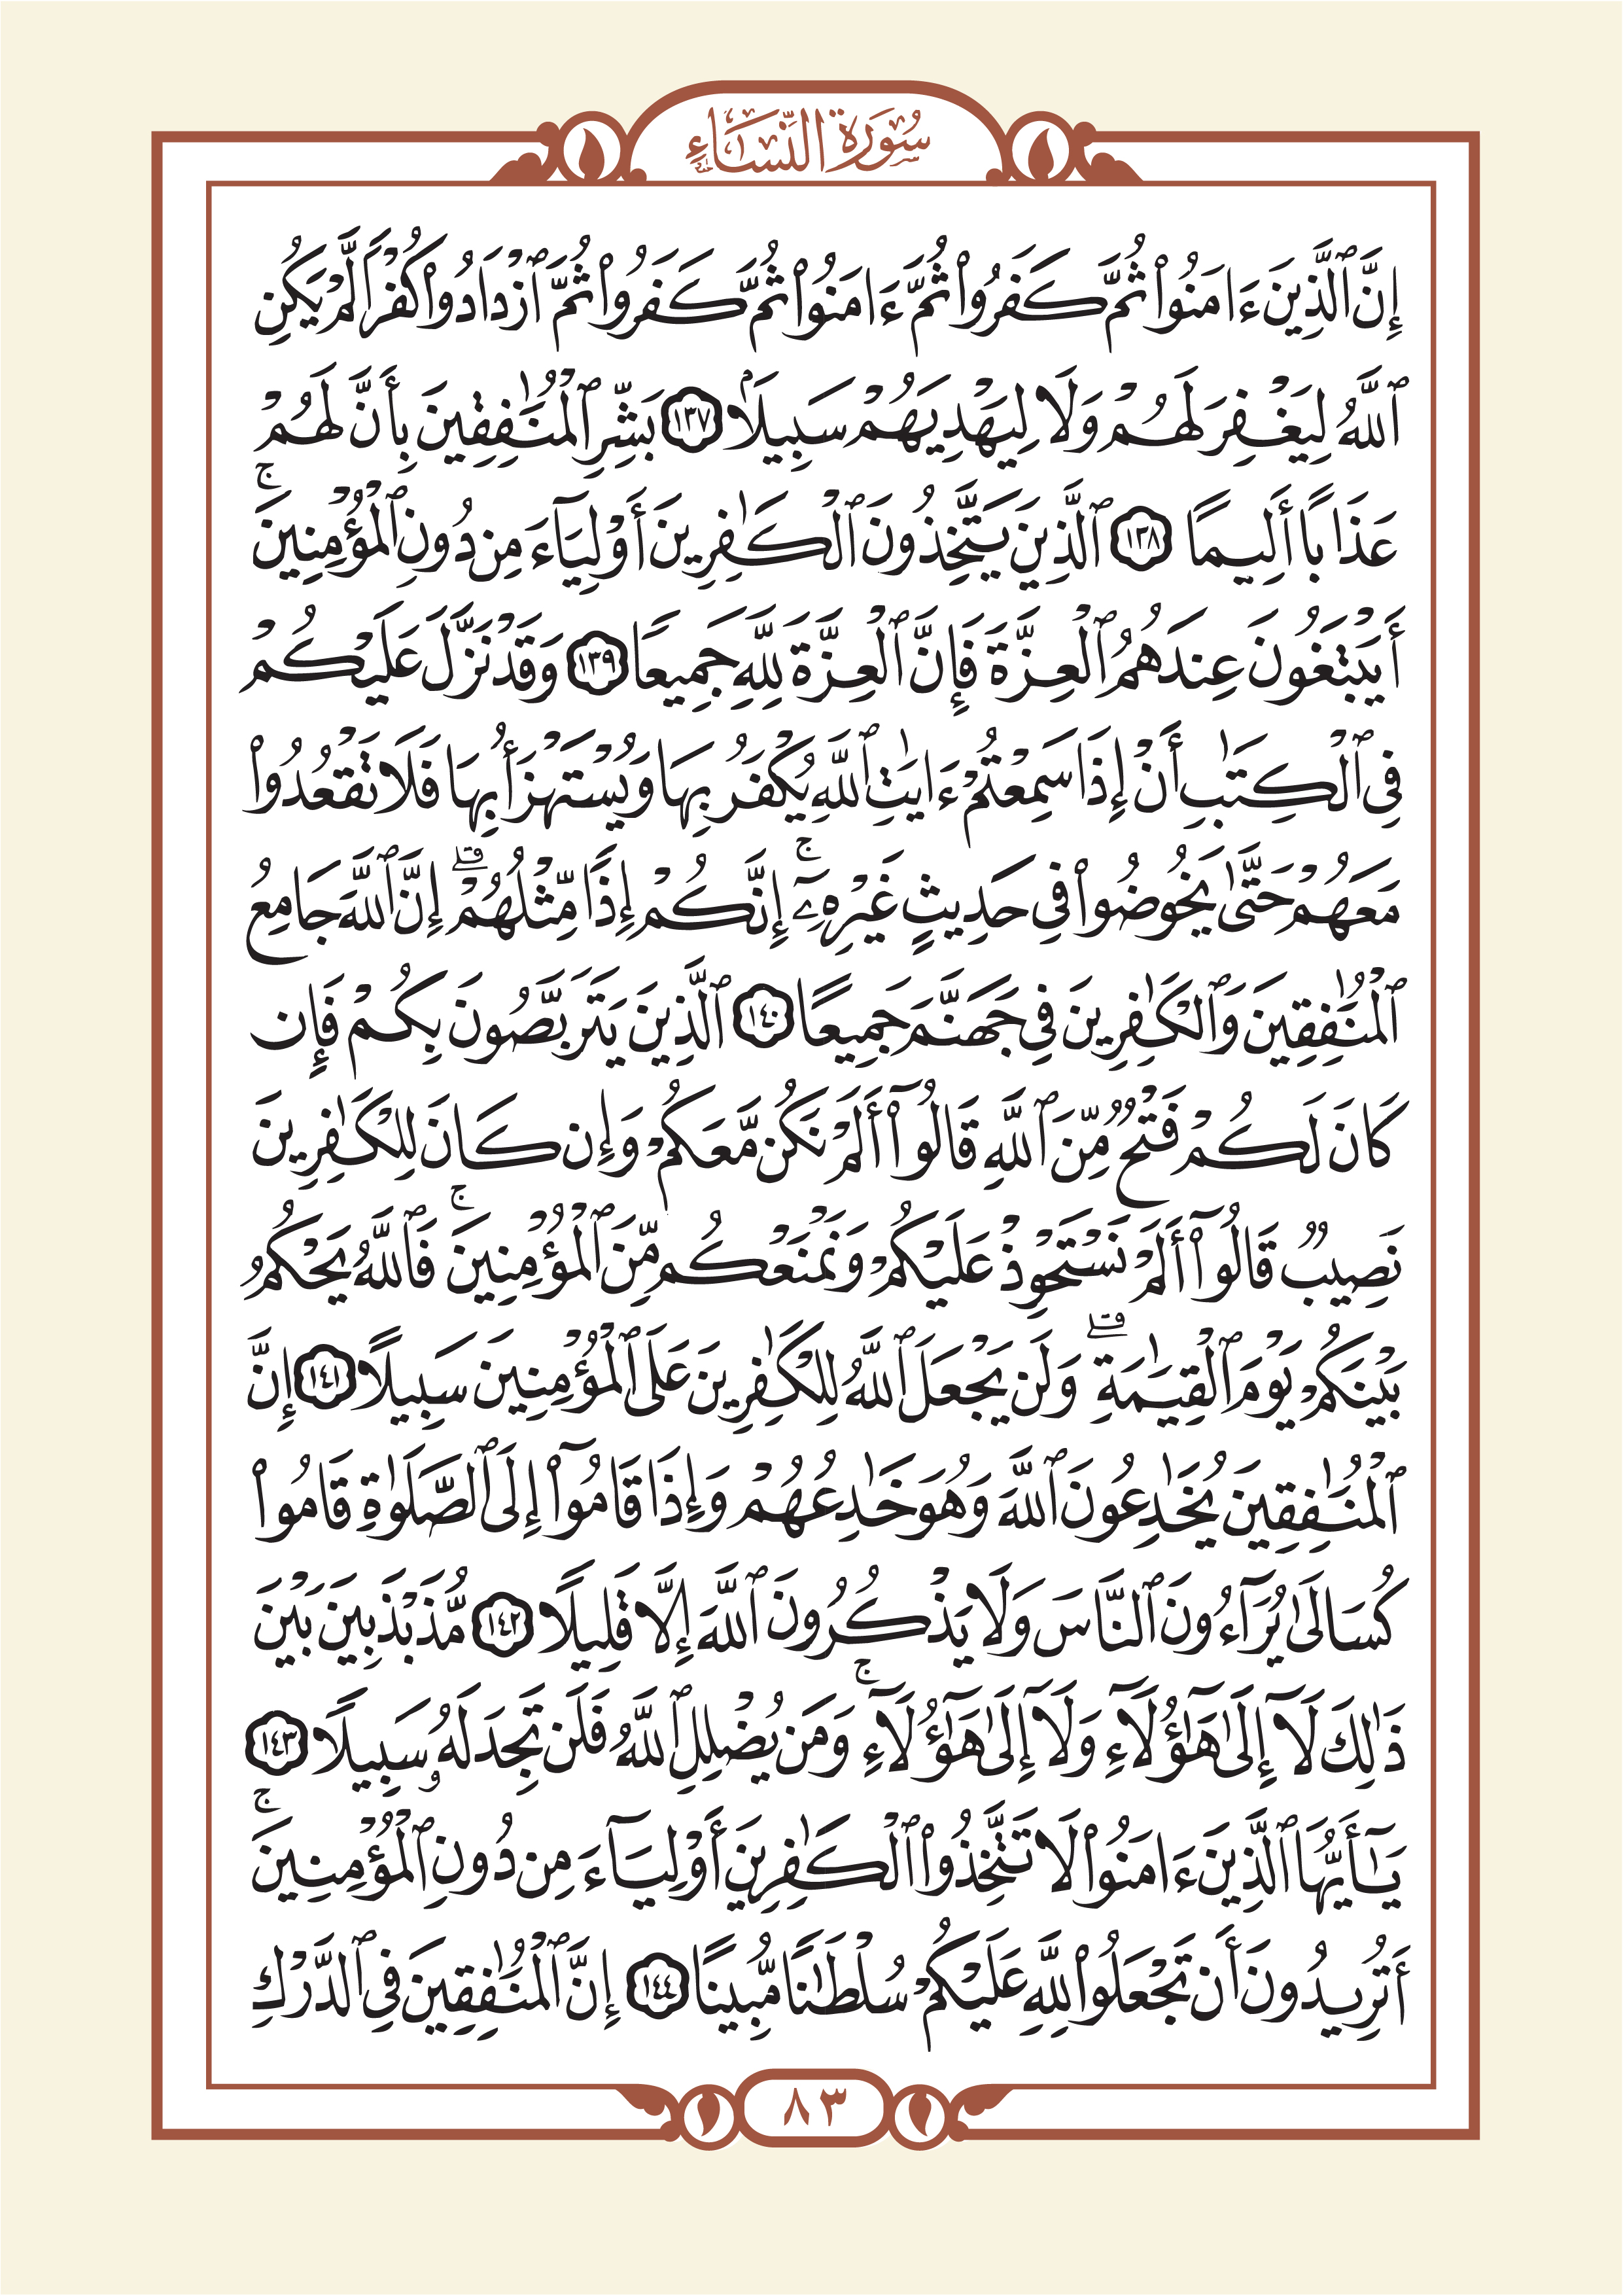 سُورَةُ النِّسَاءِ
إِنَّ ٱلَّذِينَ ءَامَنُوا۟ ثُمَّ كَفَرُوا۟ ثُمَّ ءَامَنُوا۟ ثُمَّ كَفَرُوا۟ ثُمَّ ٱزْدَادُوا۟ كُفْرًا لَّمْ يَكُنِ
ٱللَّهُ لِيَغْفِرَ لَهُمْ وَلَا لِيَهْدِيَهُمْ سَبِيلًۢا ١٣٧ بَشِّرِ ٱلْمُنَـٰفِقِينَ بِأَنَّ لَهُمْ
عَذَابًا أَلِيمًا ١٣٨ ٱلَّذِينَ يَتَّخِذُونَ ٱلْكَـٰفِرِينَ أَوْلِيَآءَ مِن دُونِ ٱلْمُؤْمِنِينَ ۚ
أَيَبْتَغُونَ عِندَهُمُ ٱلْعِزَّةَ فَإِنَّ ٱلْعِزَّةَ لِلَّهِ جَمِيعًا ١٣٩ وَقَدْ نَزَّلَ عَلَيْكُمْ
فِى ٱلْكِتَـٰبِ أَنْ إِذَا سَمِعْتُمْ ءَايَـٰتِ ٱللَّهِ يُكْفَرُ بِهَا وَيُسْتَهْزَأُ بِهَا فَلَا تَقْعُدُوا۟
مَعَهُمْ حَتَّىٰ يَخُوضُوا۟ فِى حَدِيثٍ غَيْرِهِۦٓ ۚ إِنَّكُمْ إِذًا مِّثْلُهُمْ ۗ إِنَّ ٱللَّهَ جَامِعُ
ٱلْمُنَـٰفِقِينَ وَٱلْكَـٰفِرِينَ فِى جَهَنَّمَ جَمِيعًا ١٤٠ ٱلَّذِينَ يَتَرَبَّصُونَ بِكُمْ فَإِن
كَانَ لَكُمْ فَتْحٌ مِّنَ ٱللَّهِ قَالُوٓا۟ أَلَمْ نَكُن مَّعَكُمْ وَإِن كَانَ لِلْكَـٰفِرِينَ
نَصِيبٌ قَالُوٓا۟ أَلَمْ نَسْتَحْوِذْ عَلَيْكُمْ وَنَمْنَعْكُم مِّنَ ٱلْمُؤْمِنِينَ ۚ فَٱللَّهُ يَحْكُمُ
بَيْنَكُمْ يَوْمَ ٱلْقِيَـٰمَةِ ۗ وَلَن يَجْعَلَ ٱللَّهُ لِلْكَـٰفِرِينَ عَلَى ٱلْمُؤْمِنِينَ سَبِيلًا ١٤١ إِنَّ
ٱلْمُنَـٰفِقِينَ يُخَـٰدِعُونَ ٱللَّهَ وَهُوَ خَـٰدِعُهُمْ وَإِذَا قَامُوٓا۟ إِلَى ٱلصَّلَوٰةِ قَامُوا۟
كُسَالَىٰ يُرَآءُونَ ٱلنَّاسَ وَلَا يَذْكُرُونَ ٱللَّهَ إِلَّا قَلِيلًا ١٤٢ مُّذَبْذَبِينَ بَيْنَ
ذَٰلِكَ لَآ إِلَىٰ هَـٰٓؤُلَآءِ وَلَآ إِلَىٰ هَـٰٓؤُلَآءِ ۚ وَمَن يُضْلِلِ ٱللَّهُ فَلَن تَجِدَ لَهُۥ سَبِيلًا ١٤٣
يَـٰٓأَيُّهَا ٱلَّذِينَ ءَامَنُوا۟ لَا تَتَّخِذُوا۟ ٱلْكَـٰفِرِينَ أَوْلِيَآءَ مِن دُونِ ٱلْمُؤْمِنِينَ ۚ
أَتُرِيدُونَ أَن تَجْعَلُوا۟ لِلَّهِ عَلَيْكُمْ سُلْطَـٰنًا مُّبِينًا ١٤٤ إِنَّ ٱلْمُنَـٰفِقِينَ فِى ٱلدَّرْكِ
٨٣